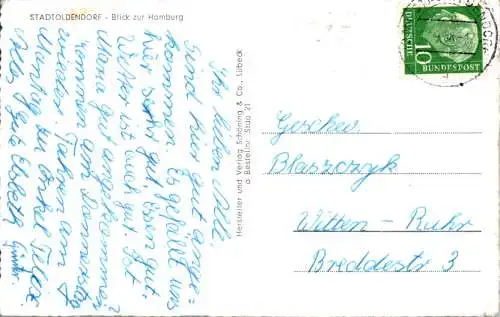 STADTOLDENDORF - Blick zur Homburg
Ihr Lieben Alle.
Sind hier gut ange=
kommen. Es gefällt uns
hier sehr gut, Essen gut.
Wetter ist auch gut. Ist
Mama gut angekommen?
am Donnerstag
wieder. Fahren am
Montag zu Onkel
Alles Gute Elsbeth
Günter.
Hersteller und Verlag Schöning & Co., Lübeck
Bestellnr. Stao 21
DEUTSCHE
BUNDESPOST
10
Geschw.
Blaszczyk
Witten-Ruhr
Breddestr 3